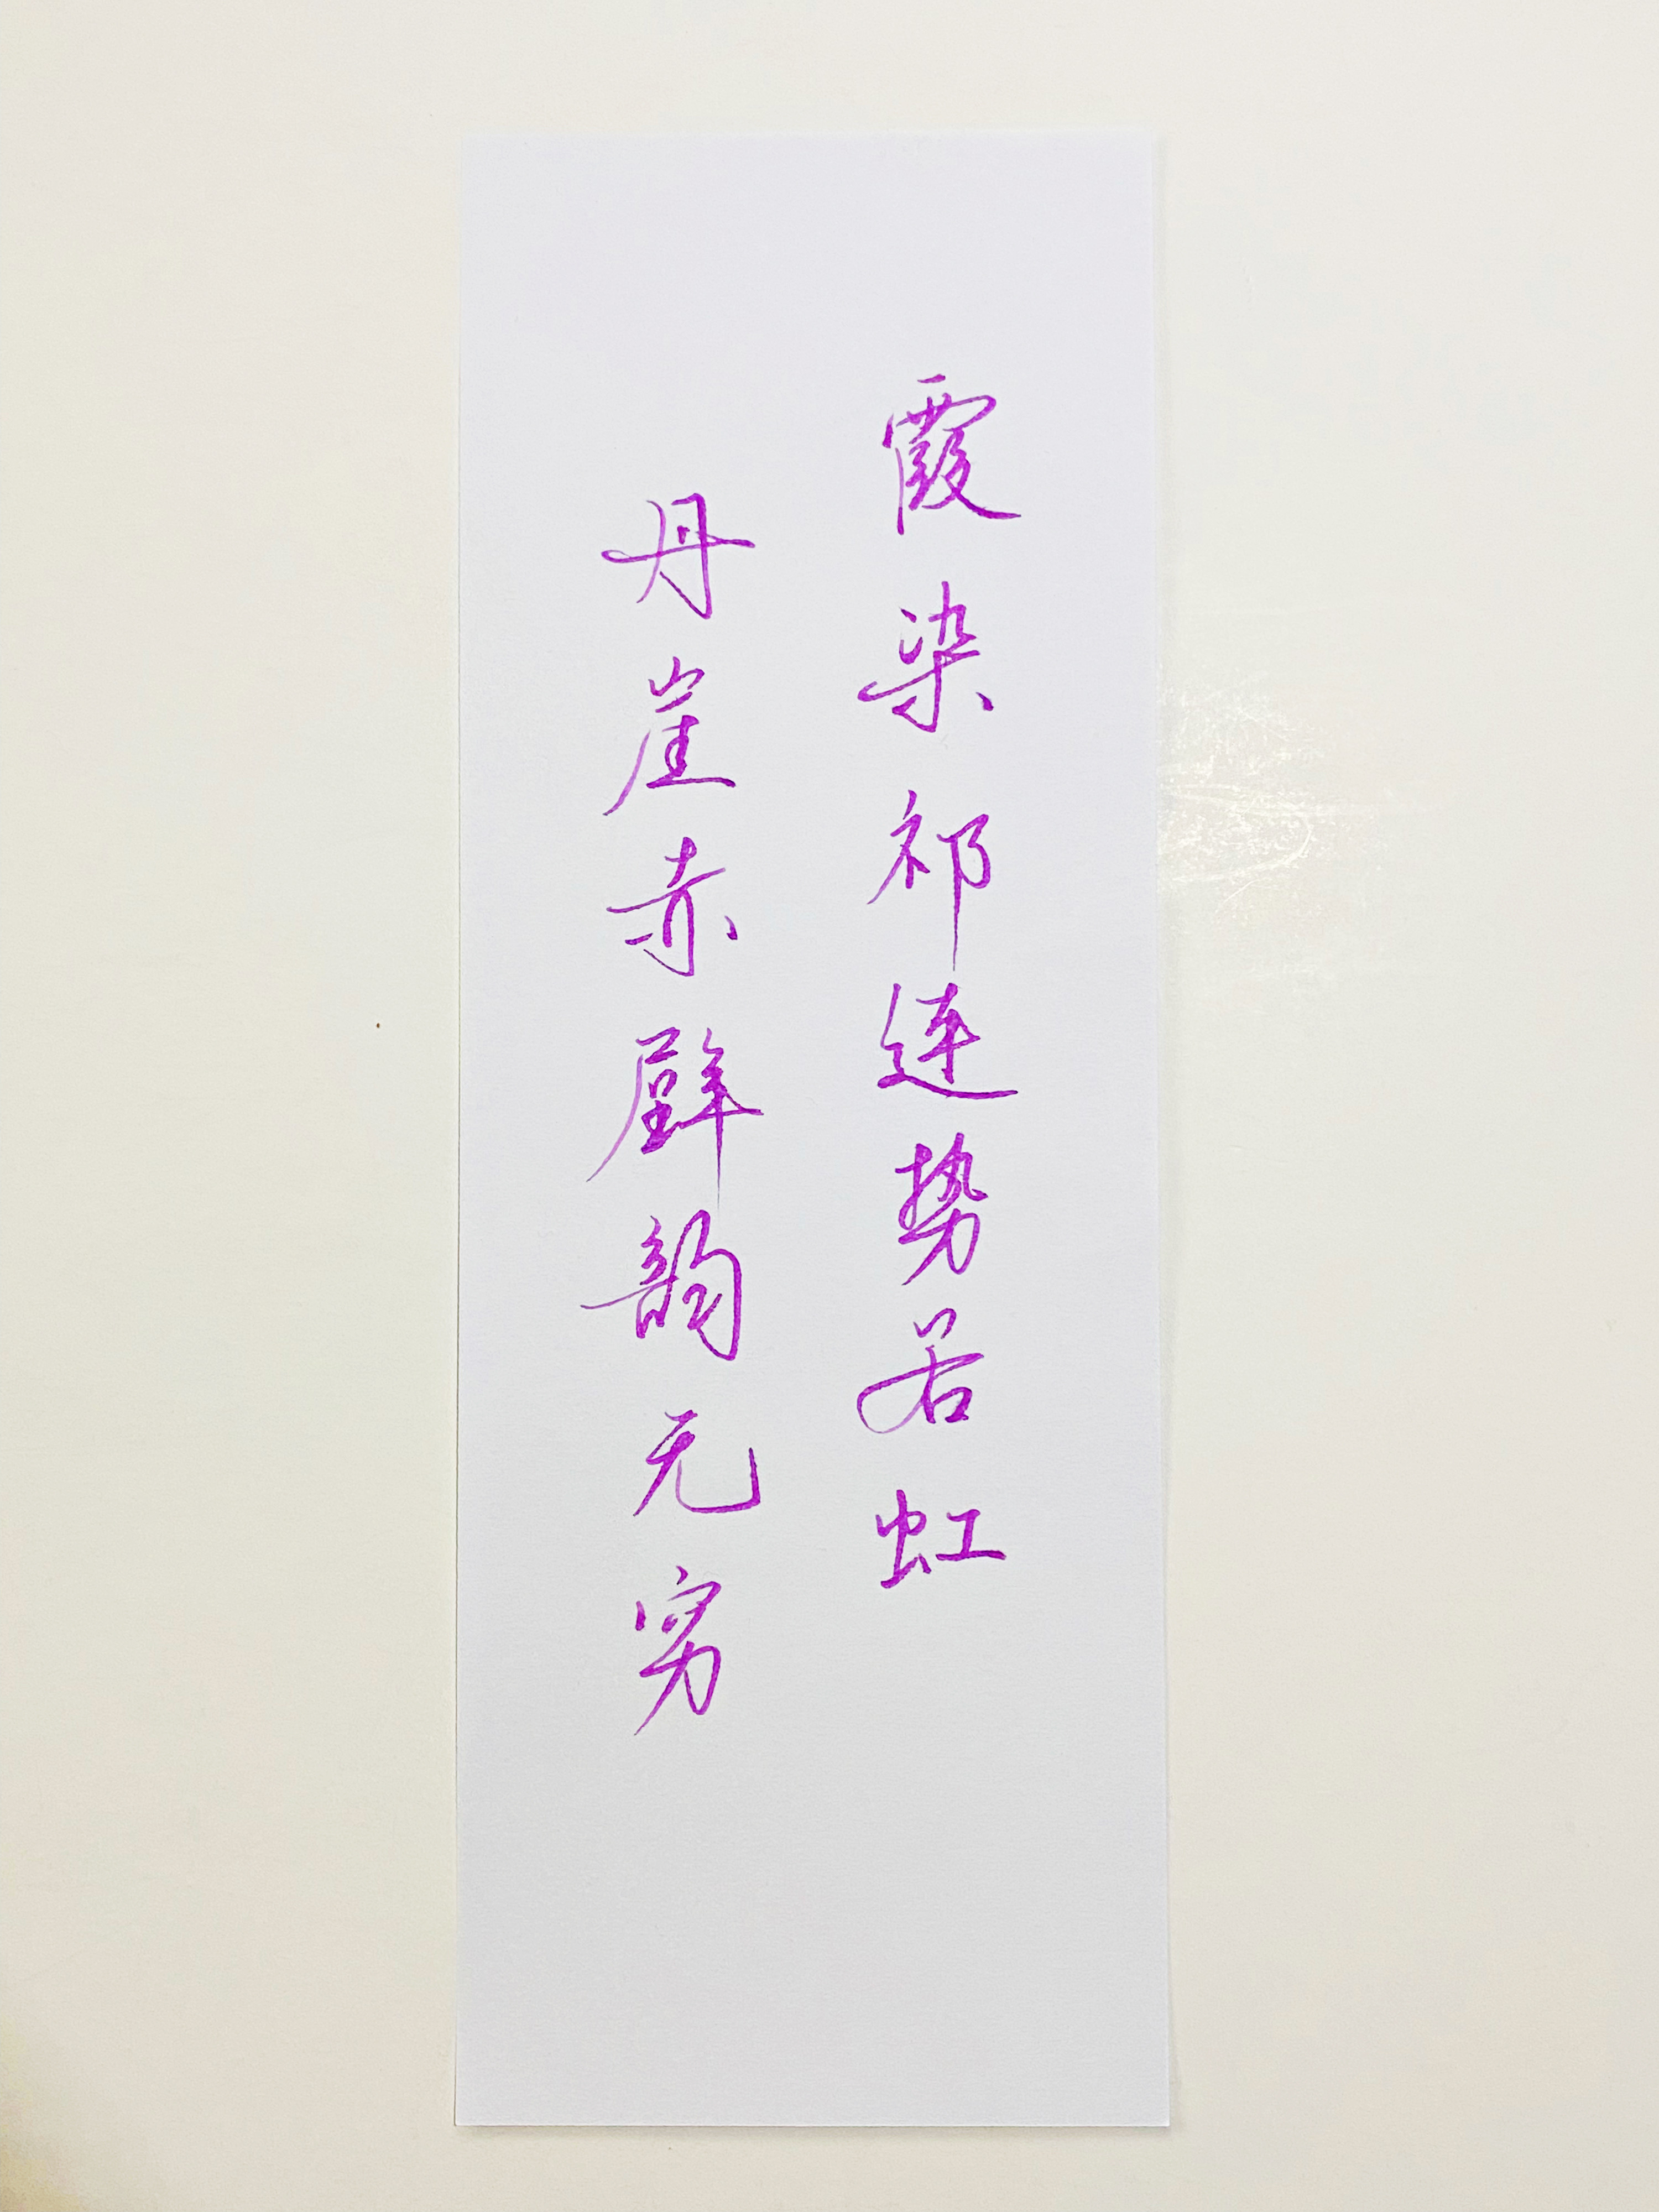 霞染祁连势若虹
丹崖赤壁韵无穷